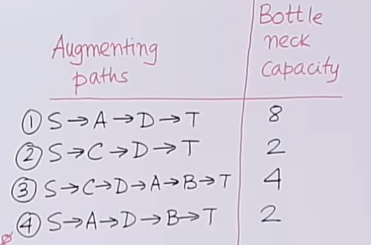 Augmenting paths
Bottle neck capacity
① S→A→D→T 8
② S→C→D→T 2
③ S→C→D→A→B→T 4
④ S→A→D→B→T 2